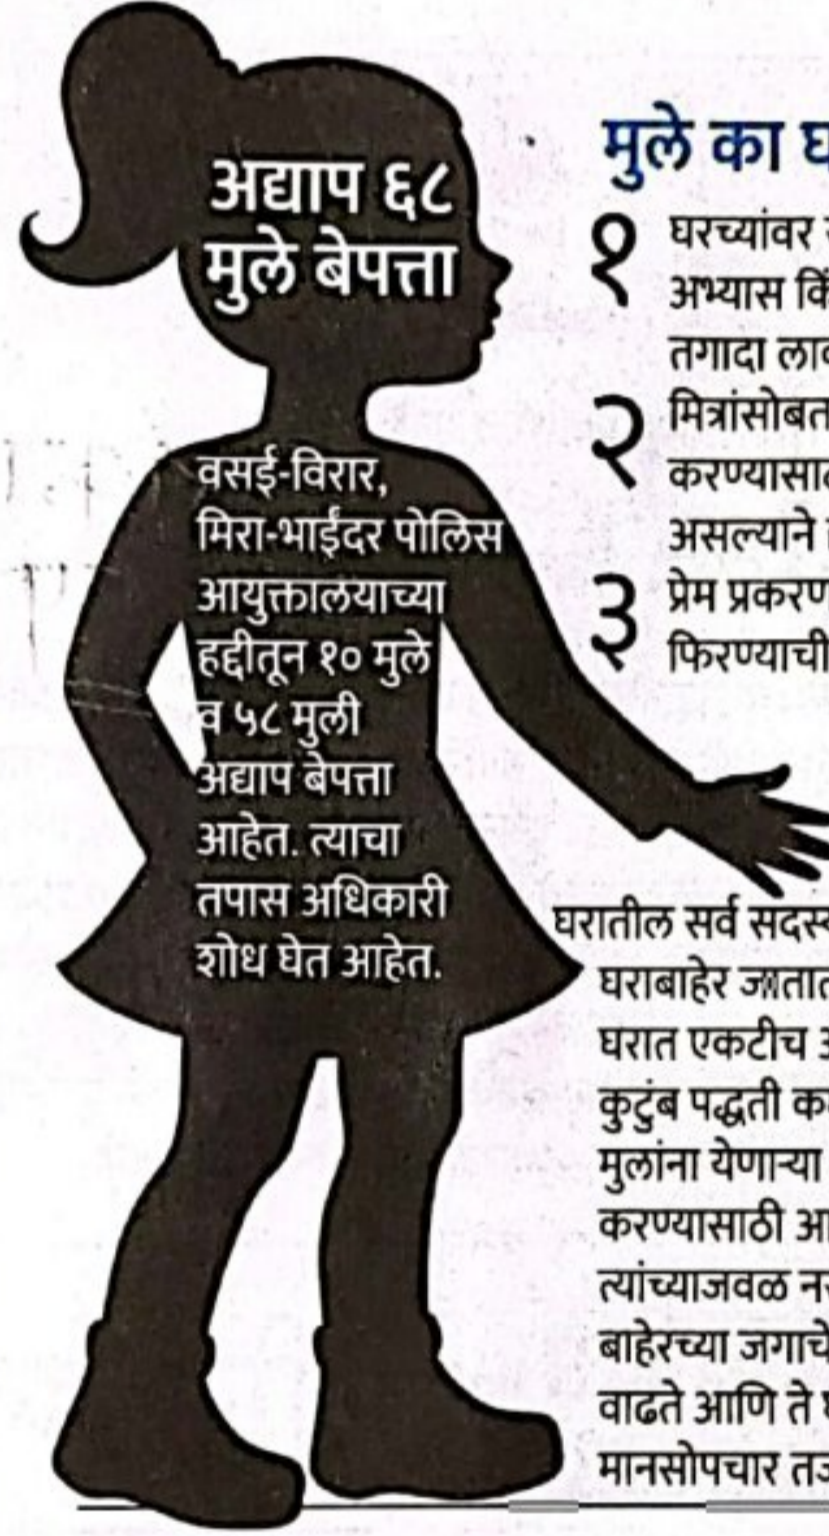 अद्याप ६८
मुले बेपत्ता
वसई-विरार,
मिरा-भाईंदर पोलिस
आयुक्तालयाच्या
हद्दीतून १० मुले
व ५८ मुली
अद्याप बेपत्ता
आहेत. त्याचा
तपास अधिकारी
शोध घेत आहेत.
मुले का
१ घरच्यांवर
अभ्यास
तगादा
२ मित्रांसोबत
असल्याने
३ प्रेम प्रकरण
फिरण्याची
घरातील सर्व
घराबाहेर जातात
घरात एकटीच
कुटुंब पद्धती
मुलांना येणाऱ्या
करण्यासाठी
त्यांच्याजवळ
बाहेरच्या जगाचे
वाढते आणि ते
मानसोपचार